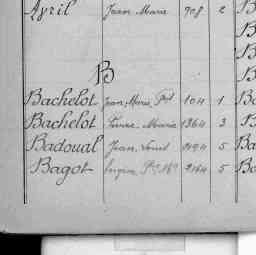 Avril Jean Marie 708 2 B
B
B
B
B
Bachelot Jean Marie Pol 104 1 Ba
Bachelot Pierre Marie 1364 3 B
Badoual Jean Louis 2194 5 Ba
Bagot Eugène 2164 5 Ba